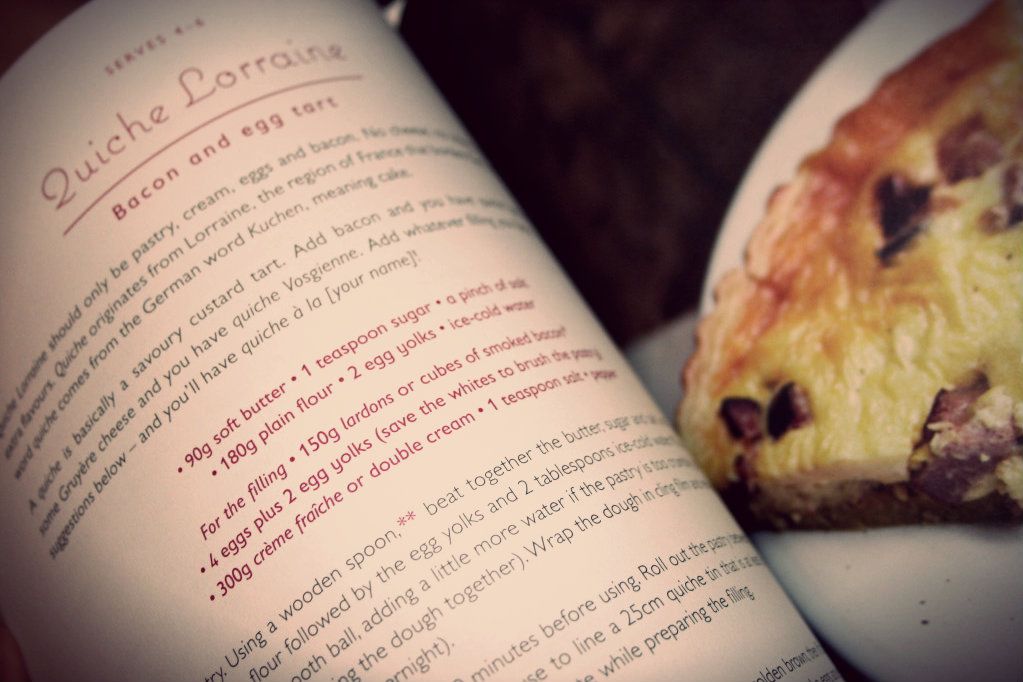 SERVES 4–6
Quiche Lorraine
Bacon and egg tart
Lorraine should only be pastry, cream, eggs and bacon. No cheese
extra flavours. Quiche originates from Lorraine, the region of France that borders
word quiche comes from the German word Kuchen, meaning cake.
A quiche is basically a savoury custard tart. Add bacon and you have
some Gruyère cheese and you have quiche Vosgienne. Add whatever filling
suggestions below – and you'll have quiche à la [your name]!
• 90g soft butter • 1 teaspoon sugar • a pinch of salt
• 180g plain flour • 2 egg yolks • ice-cold water
For the filling • 150g lardons or cubes of smoked bacon
• 4 eggs plus 2 egg yolks (save the whites to brush the pastry
• 300g crème fraîche or double cream • 1 teaspoon salt • pepper
Using a wooden spoon,** beat together the butter, sugar and
flour followed by the egg yolks and 2 tablespoons ice-cold
ooth ball, adding a little more water if the pastry is too
ing the dough together). Wrap the dough in cling film
ernight).
minutes before using. Roll out the pastry
se to line a 25cm quiche tin that is
te while preparing the filling.
olden brown,